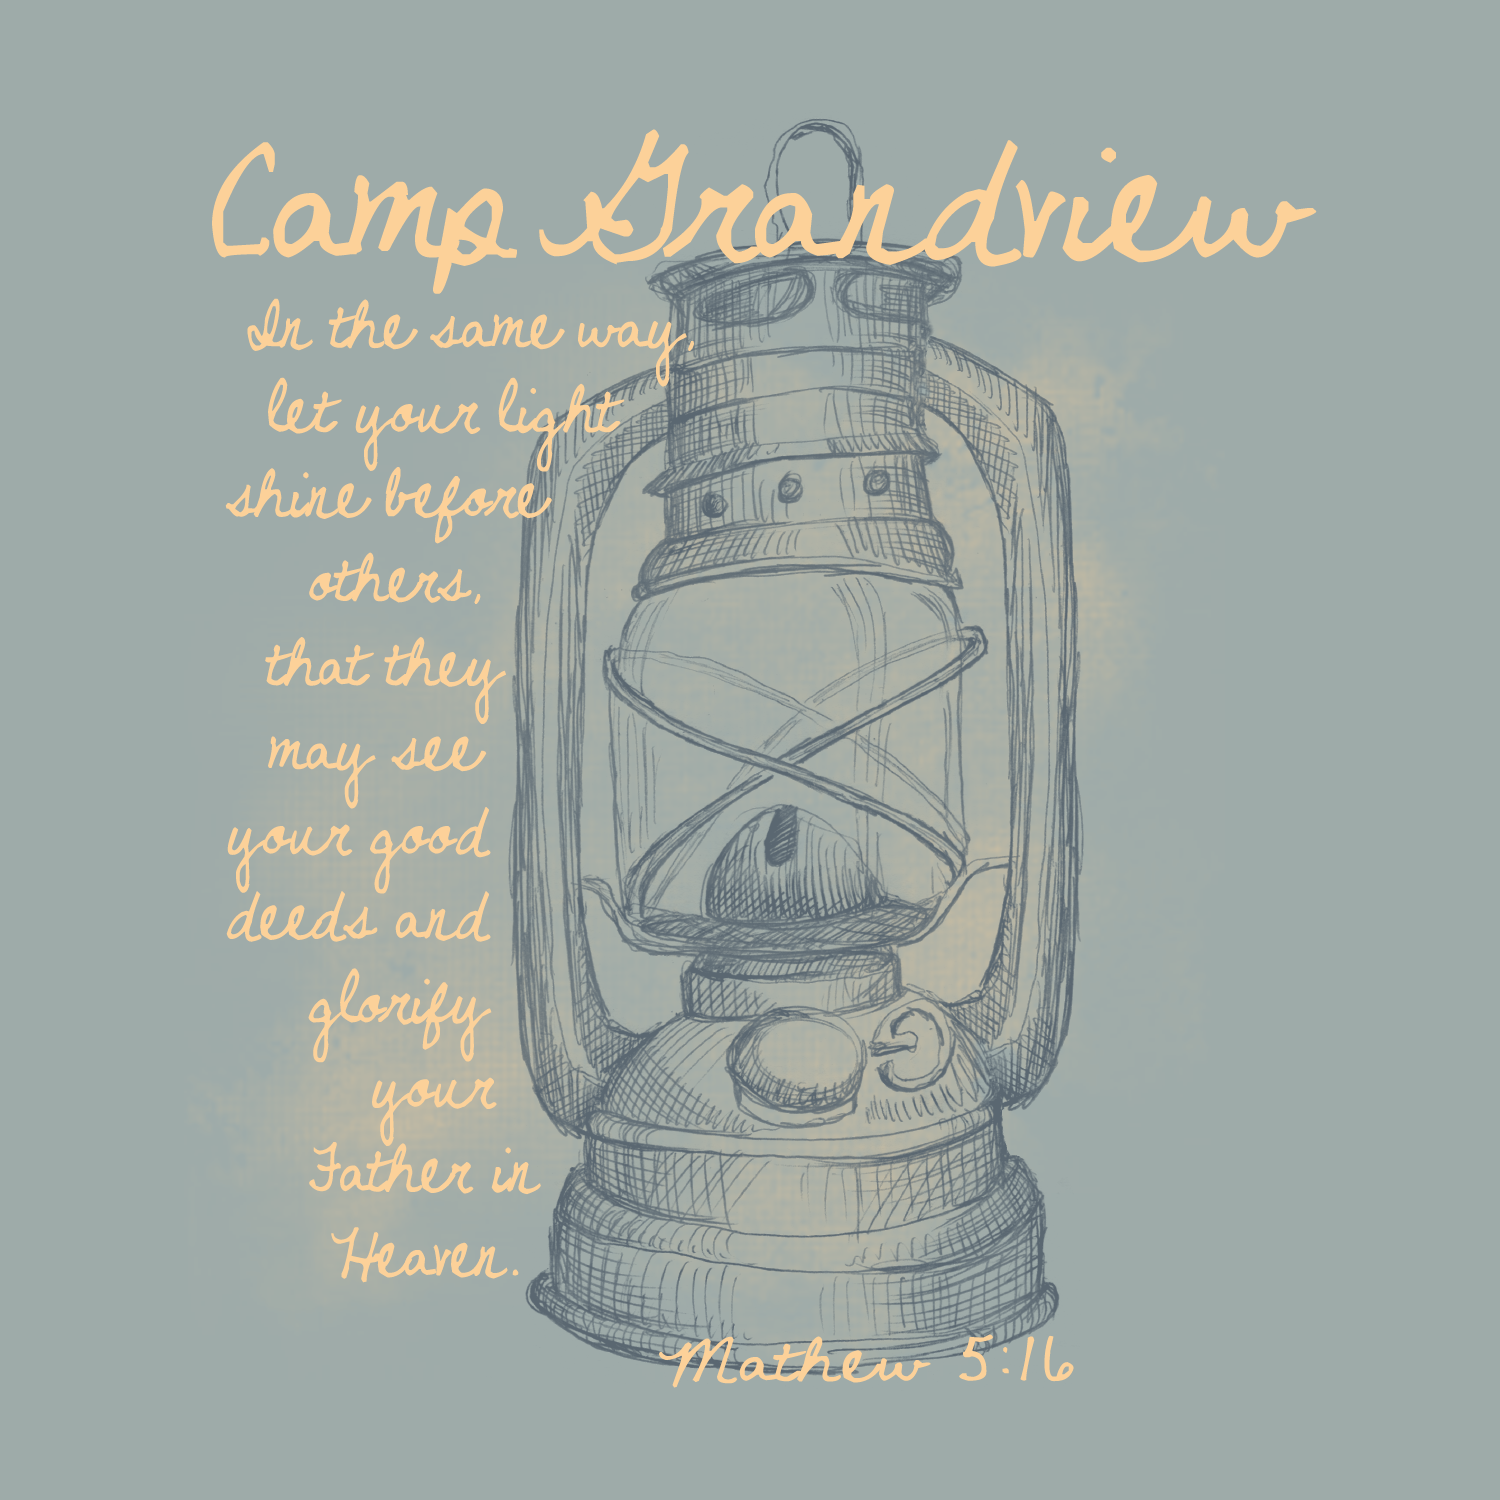 Camp Grandview
In the same way,
let your light
shine before
others,
that they
may see
your good
deeds and
glorify
your
Father in
Heaven.
Mathew 5:16